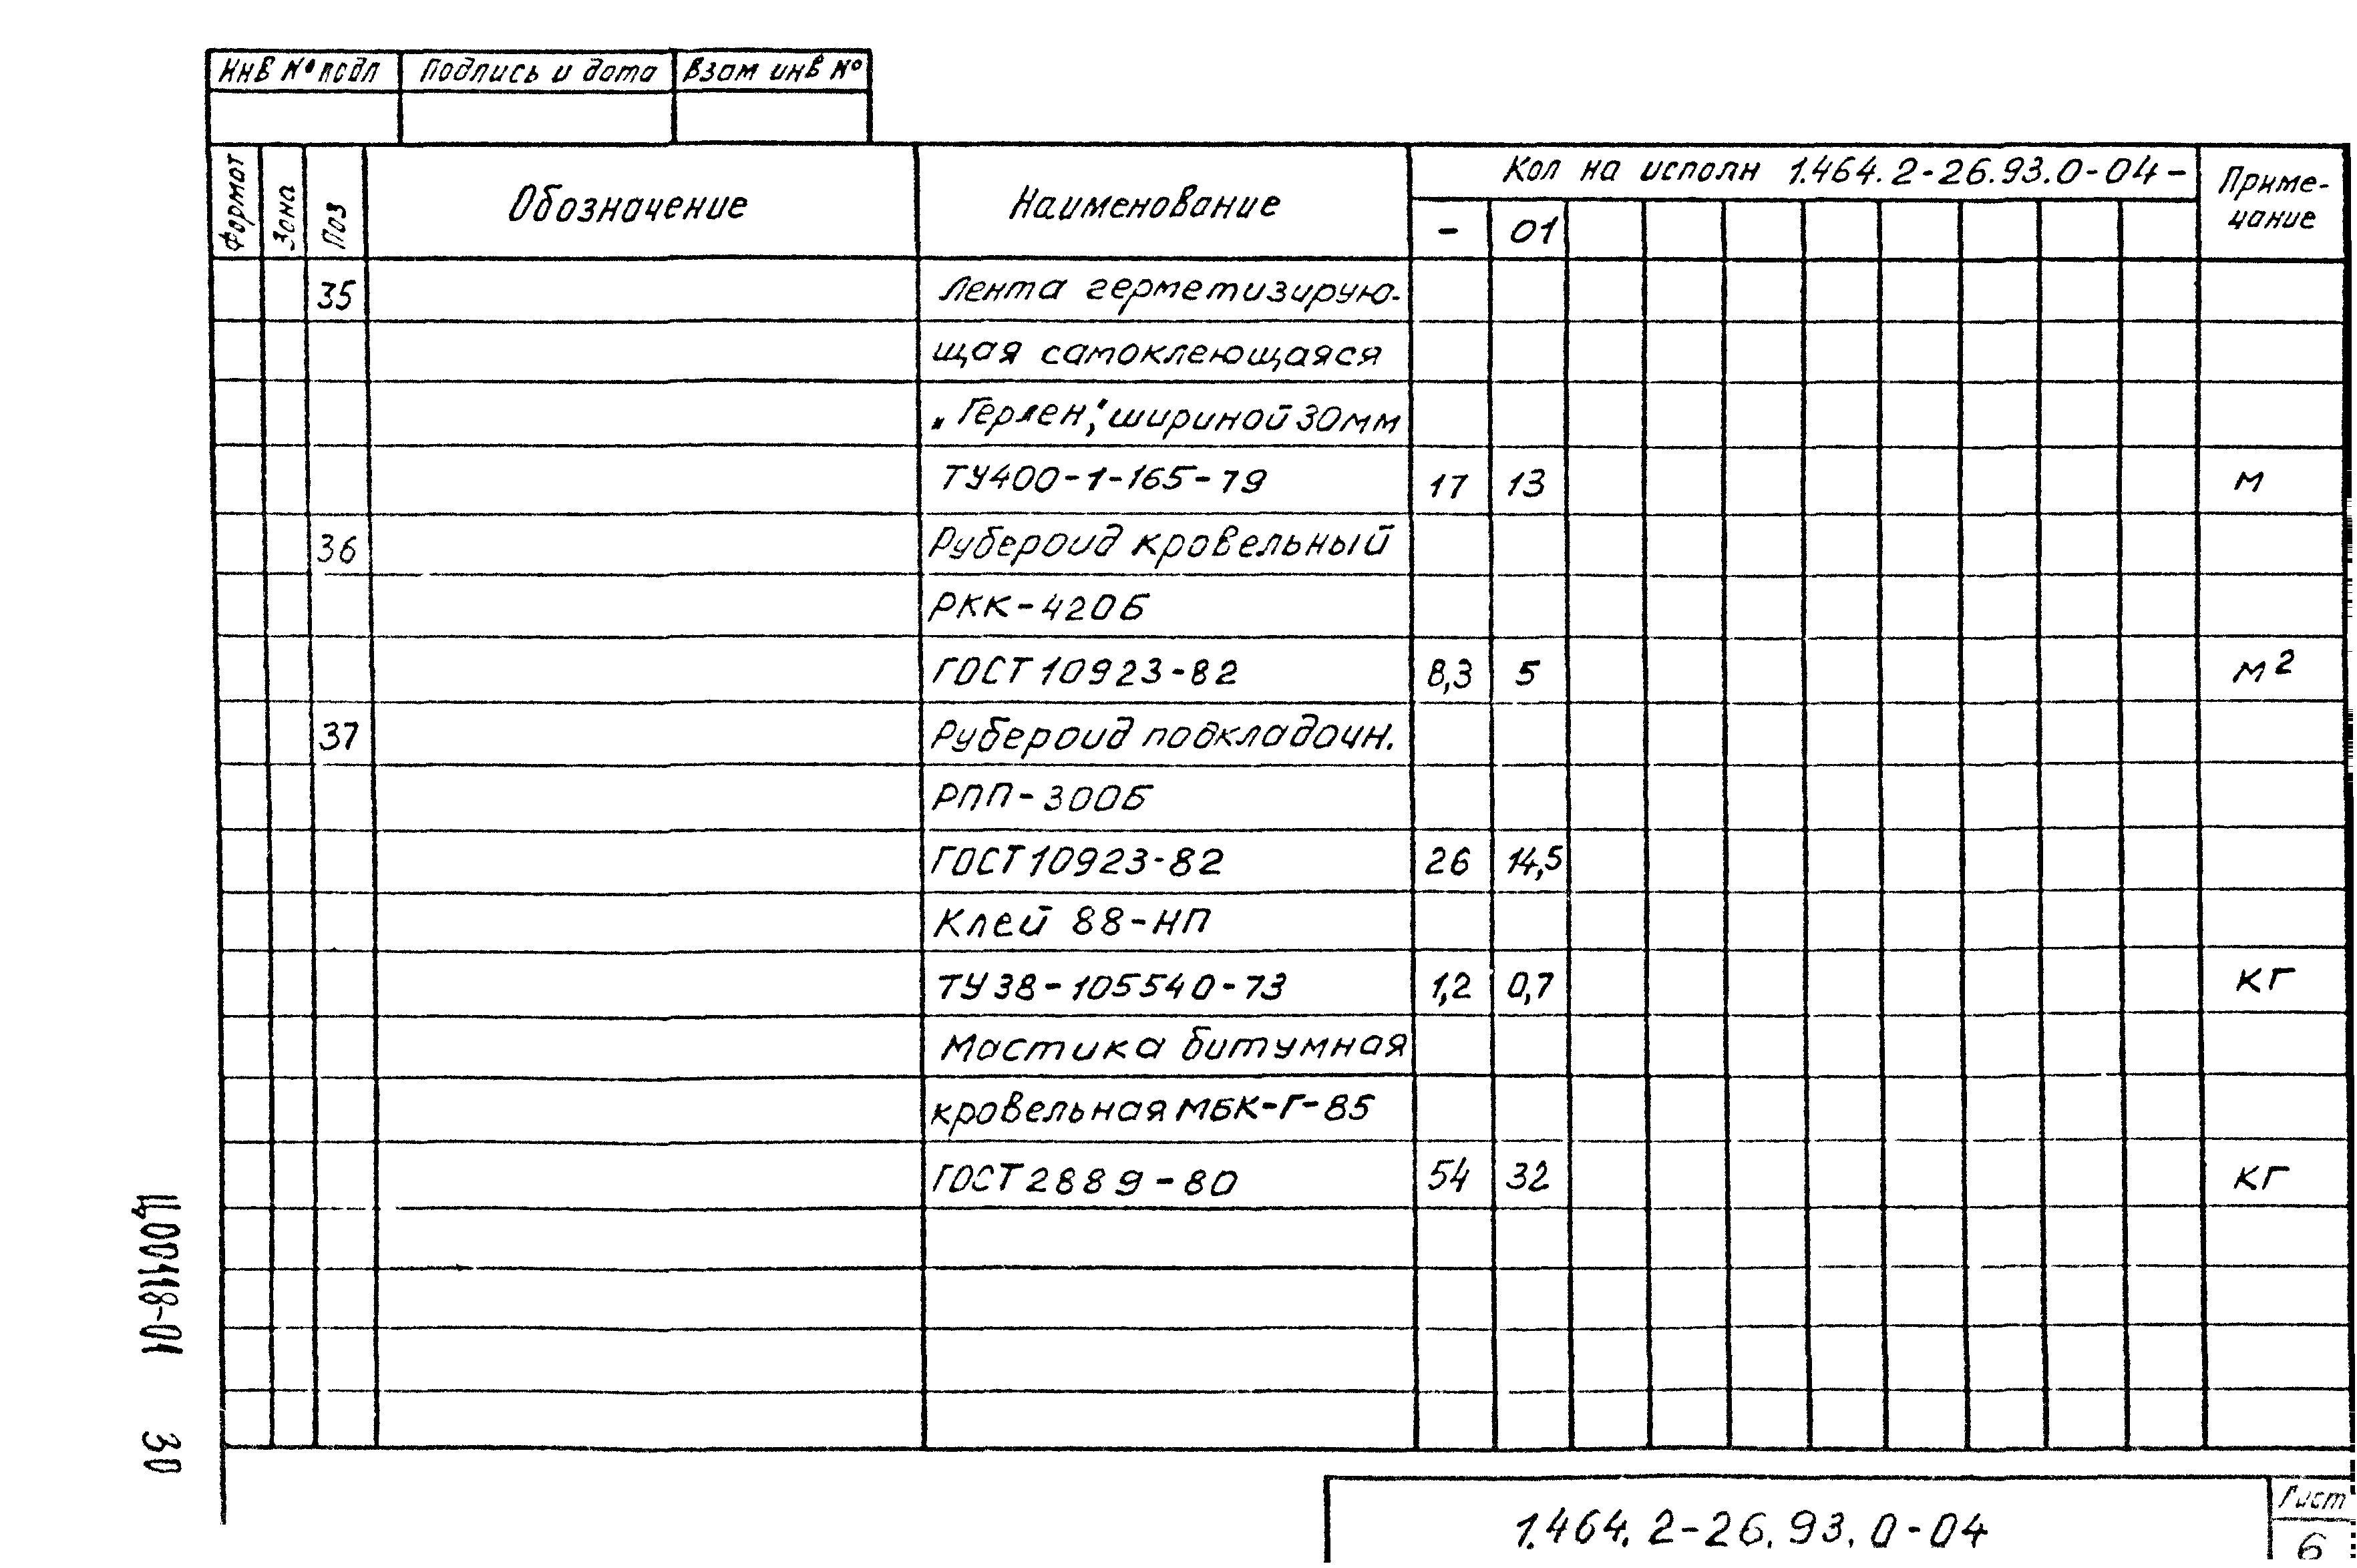 Инв № подп Подпись и дата Взам инв №
Формат Зона Поз Обозначение Наименование Кол на исполн 1.464.2-26.93.0-04- Приме-
чание
- 01
35 Лента герметизирую-
щая самоклеющаяся
„Герлен," шириной 30мм
ТУ400-1-165-79 17 13 м
36 Рубероид кровельный
РКК-420Б
ГОСТ 10923-82 8,3 5 м²
37 Рубероид подкладочн.
РПП-300Б
ГОСТ 10923-82 26 14,5
Клей 88-НП
ТУ 38-105540-73 1,2 0,7 кг
Мастика битумная
кровельная МБК-Г-85
ГОСТ 2889-80 54 32 кг
Ц00418-01 30
1.464.2-26.93.0-04
Лист
6